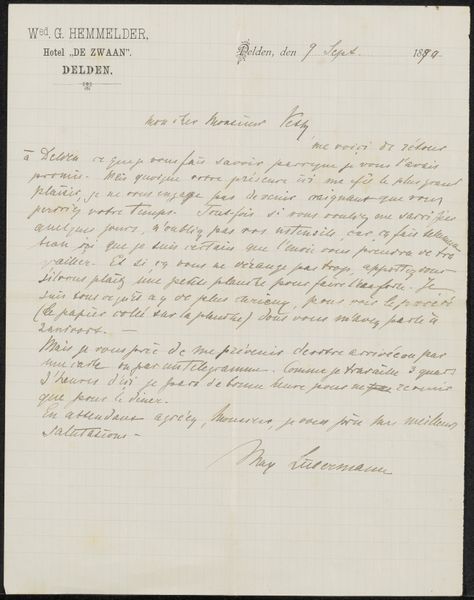 Wed. G. HEMMELDER,
Hotel „DE ZWAAN".
DELDEN.
Delden, den 9 Sept. 1889.
mon cher Monsieur Veth
me voici de retour
à Delden ce que je vous fais savoir parceque je vous l'avais
promis. Mais quelque votre présence ici me fit le plus grand
plaisir, je ne vous engage pas de venir craignant que vous
perdriez votre temps. Toutefois si vous vouliez me sacrifier
quelques jours, n'oubliez pas vos ustensils, car ça fait
beau ici que je suis certain que l'envie vous prendra de tra
vailler. Et si ça vous ne dérange pas trop, apportez vous
s'il vous plait une petite planche pour faire l'eauforte. Je
suis tous ce qu'il a y de plus curieux, pour voir le procédé
(le papier collé sur la planche) dont vous m'avez parlé à
Zantvoort. —
Mais je vous prie de me prévenir de votre arrivée ou par
une carte ou par un telegramme. Comme je travaille 3 quars
d'heures d'ici je pars de bonne heure pour ne revenir
que pour le diner.
En attendant agréez, Monsieur, je vous prie mes meilleurs
salutations —
Max Liebermann